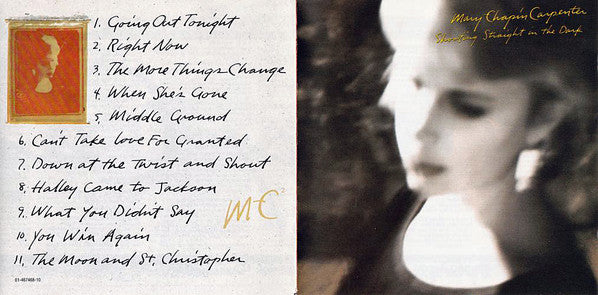 1. Going Out Tonight
2. Right Now
3. The More Things Change
4. When She's Gone
5. Middle Ground
6. Can't Take Love For Granted
7. Down at the Twist and Shout
8. Halley Came to Jackson
9. What You Didn't Say
10. You Win Again
11. The Moon and St. Christopher
MC²
01-467468-10
Mary Chapin Carpenter
Shooting Straight in the Dark